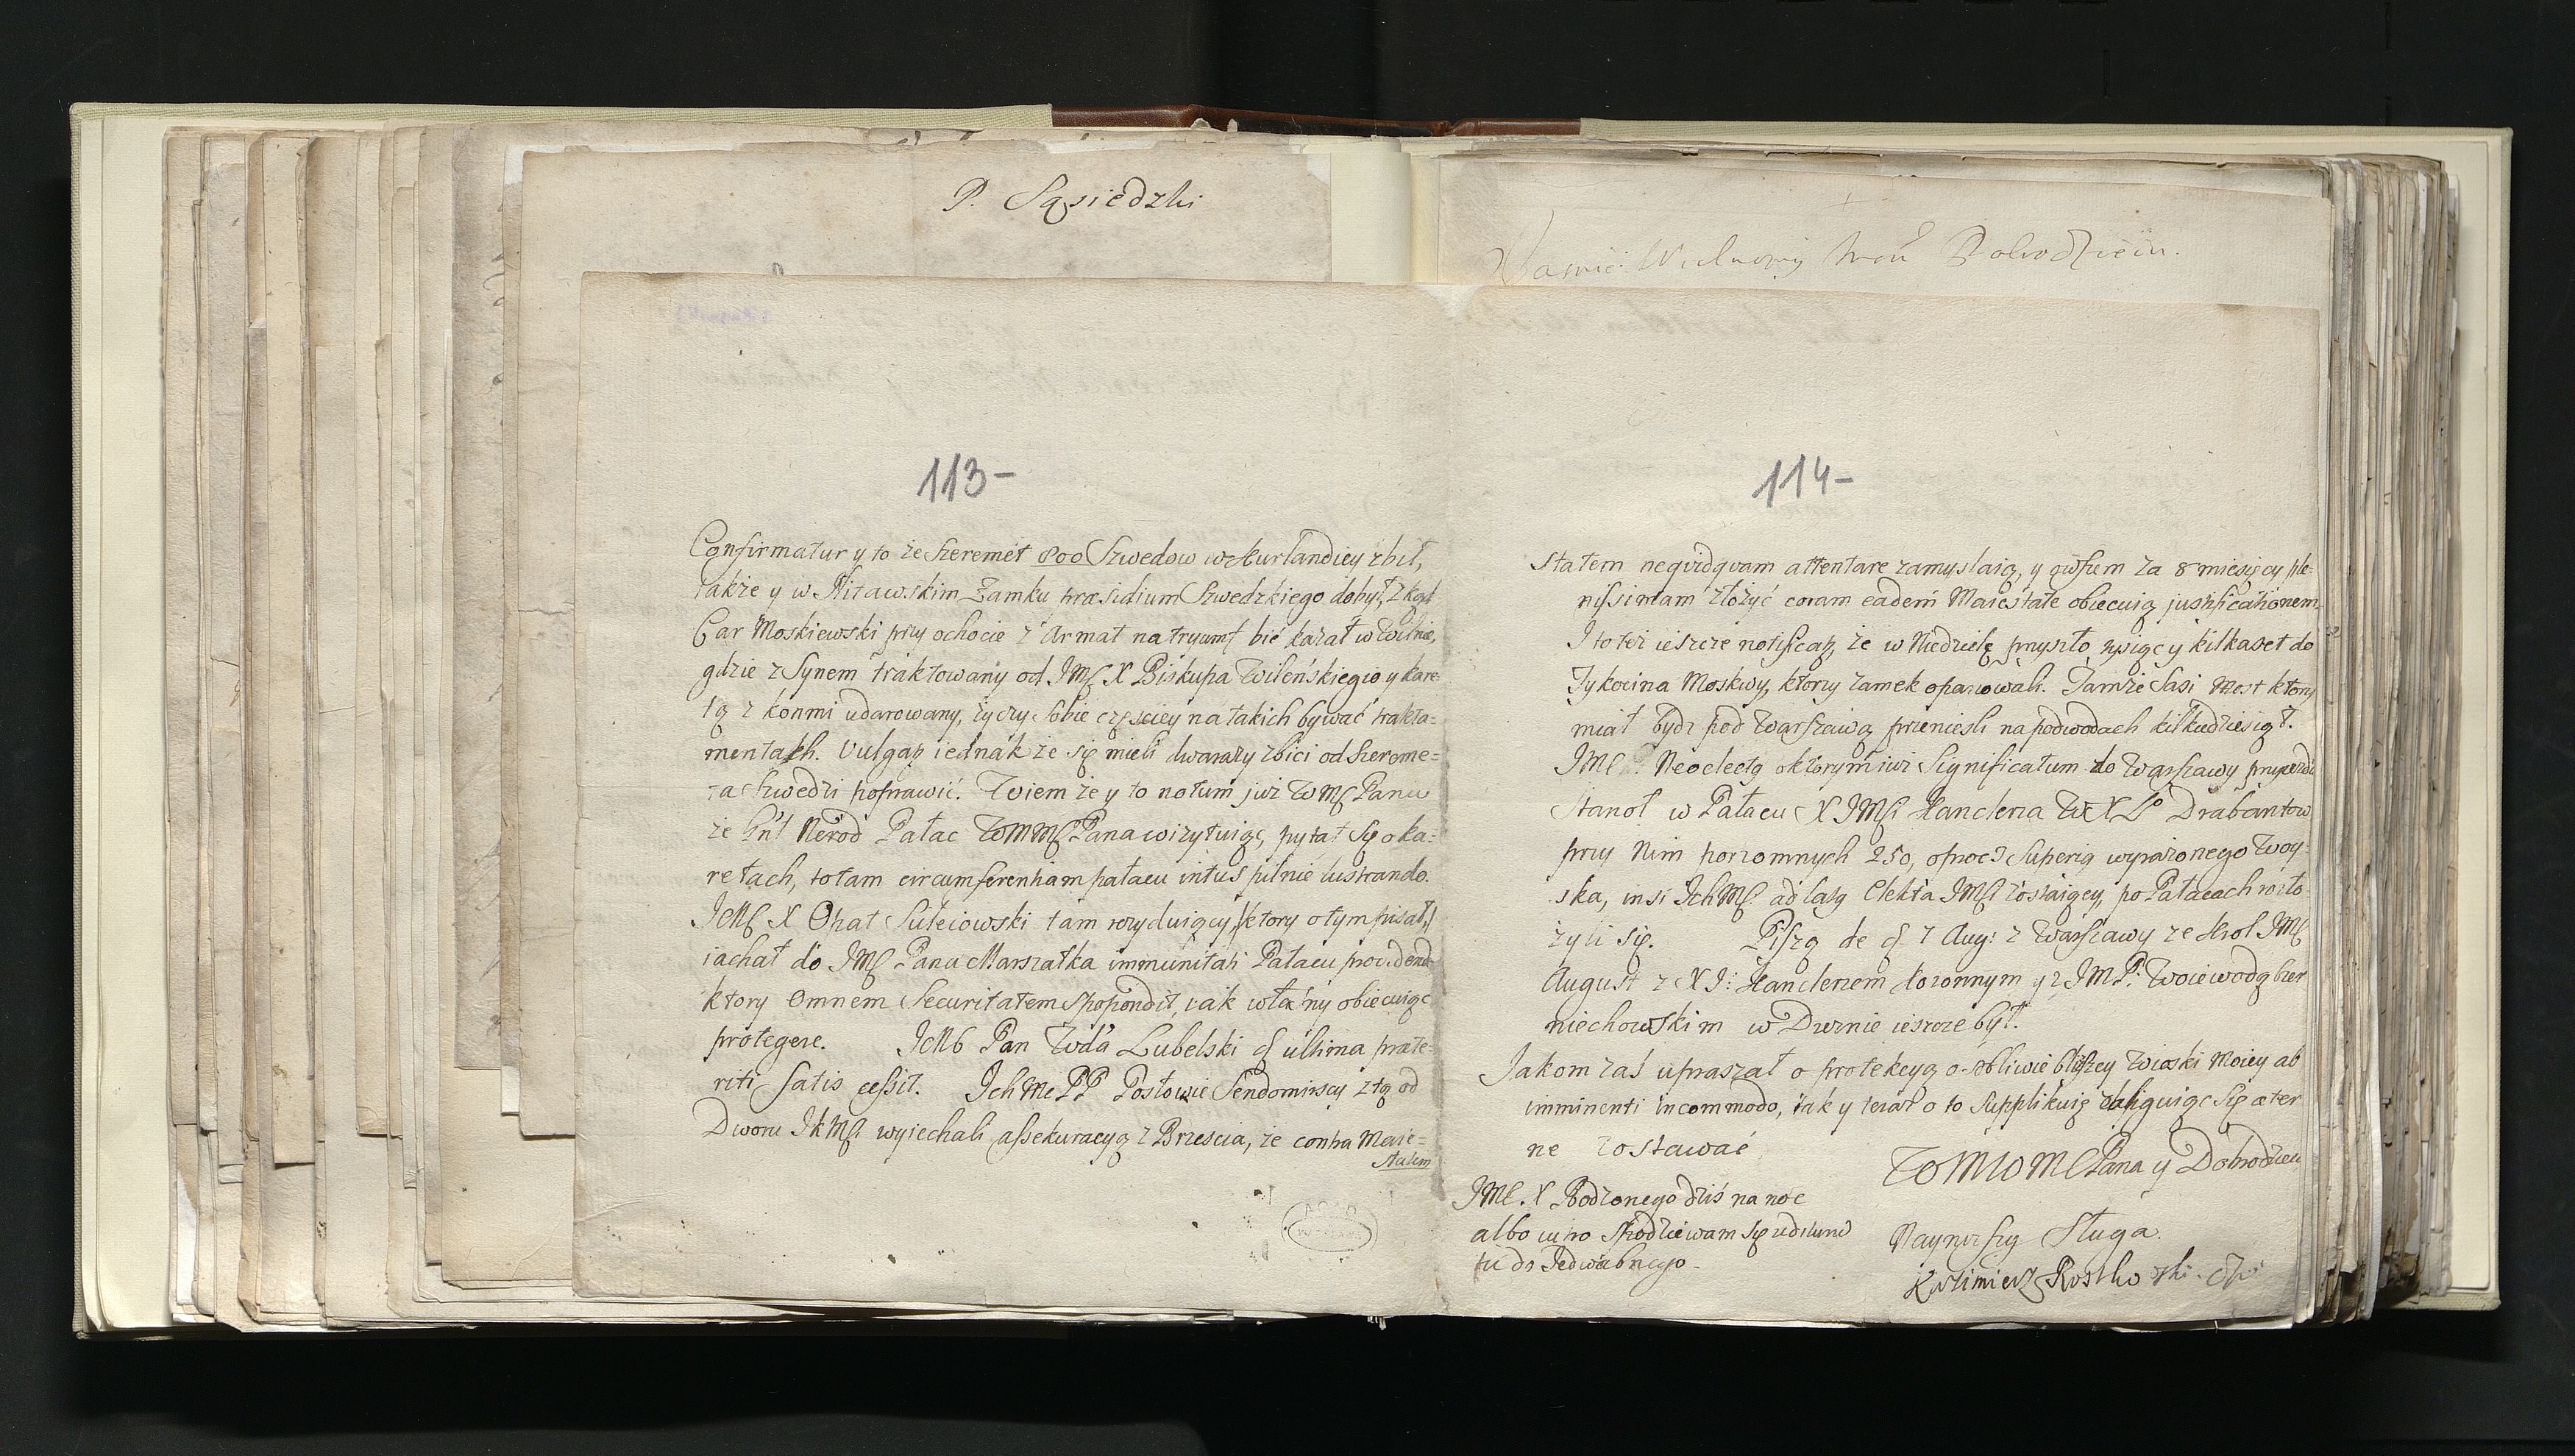 P. Sąsiedzki
113-
Confirmatur y to że Szeremet 800 Szwedow w Kurlandiey zbił,
także y w Mitawskim Zamku præsidium Szwedzkiego dobył, zkąd
Car Moskiewski przy ochocie z Armat na tryumf bić kazał w Wilnie,
gdzie z Synem traktowany od JMſ X Biskupa Wileńskiego y kare
tą z końmi udarowany, życzy sobie częściey na takich bywać trakta=
mentach. Vulgaz iednak że się mieli dwarazy zbici od Szereme=
ta Szwedzi poprawić. Wiem że y to notum już WMſ Panu
że Gn̄ł Nerod Pałac WMMſ Pana wizytuiąc, pytał się o ka=
retach, totam circumferentiam pałacu intus pilnie lustrando.
JeMſ X Opat Suleiowski tam rezyduiący, (ktory o tym pisał,)
iachał do JMſ Pana Marszałka immunitati Pałacu providendo
ktory omnem Securitatem Spopondit, iak własny obiecuiąc
protegere. JeMć Pan Wda Lubelski d. ultima præte=
riti satis cessit. Ich Mc PP Posłowie Sendomirscy z tą od
Dworu JKMſi wyiechali assekuracyą z Brześcia, że contra Maie=
statem
114-
Jasnie Wielmozny Mſci Dobrodzieiu.
statem neqvidqvam attentare zamyslaią, y owszem za 8 miesięcy ple-
nissimam złożyć coram eadem Maiestate obiecuią justificationem.
I to też ieszcze notificaz, że w Niedzielę przyszło tysiąc y kilkaset do
Tykocina Moskwy, ktorzy zamek opanowali. Tamże Sasi Most ktory
miał bydz pod Warszawą przenieśli na podwodach kilkudziesiąt.
JMſ Neoelectą o ktorym iuż Significatum do Warszawy
Stanoł w Pałacu X JMſi Kanclerza W X Lo Drabantow
przy Nim konnych 250, oprocz Superią wyrażonego Woy
ska, insi IchMſ ad lasą Elekta JMſi zostaiący, po Pałacach rozło
żyli się. Piszą de d. 7 Aug: z Warszawy ze Krol JMſ
August z X J: Kanclerzem Koronnym y z JMP. Woiewodą Kier
niechowskim w Dreznie ieszcze był.
Jakom zaś upraszał o protekcyą osobliwie bliższey Wioski Moiey ab
imminenti incommodo, tak y teraz o to Supplikuię obliguiąc się æter
ne zostawać
WMWMſ Pana y Dobrodzieia
JMſ. X Podzonego dziś na noc
albo iutro spodziewam się
tu do Jedwabnego.
Naynizszy Sługa.
Kazimierz Rostkowski.